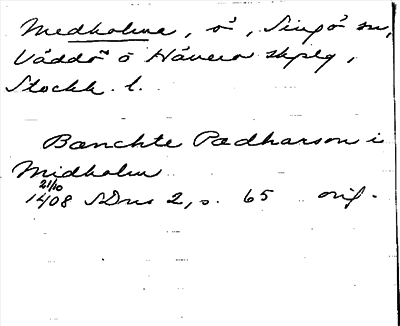 Medholma, ö, Singö sn,
Väddö o Häverö skplg,
Stockh. l.
Bænchte Pædharson i
Midholm
21/10
1408 SDns 2, s. 65 orig.